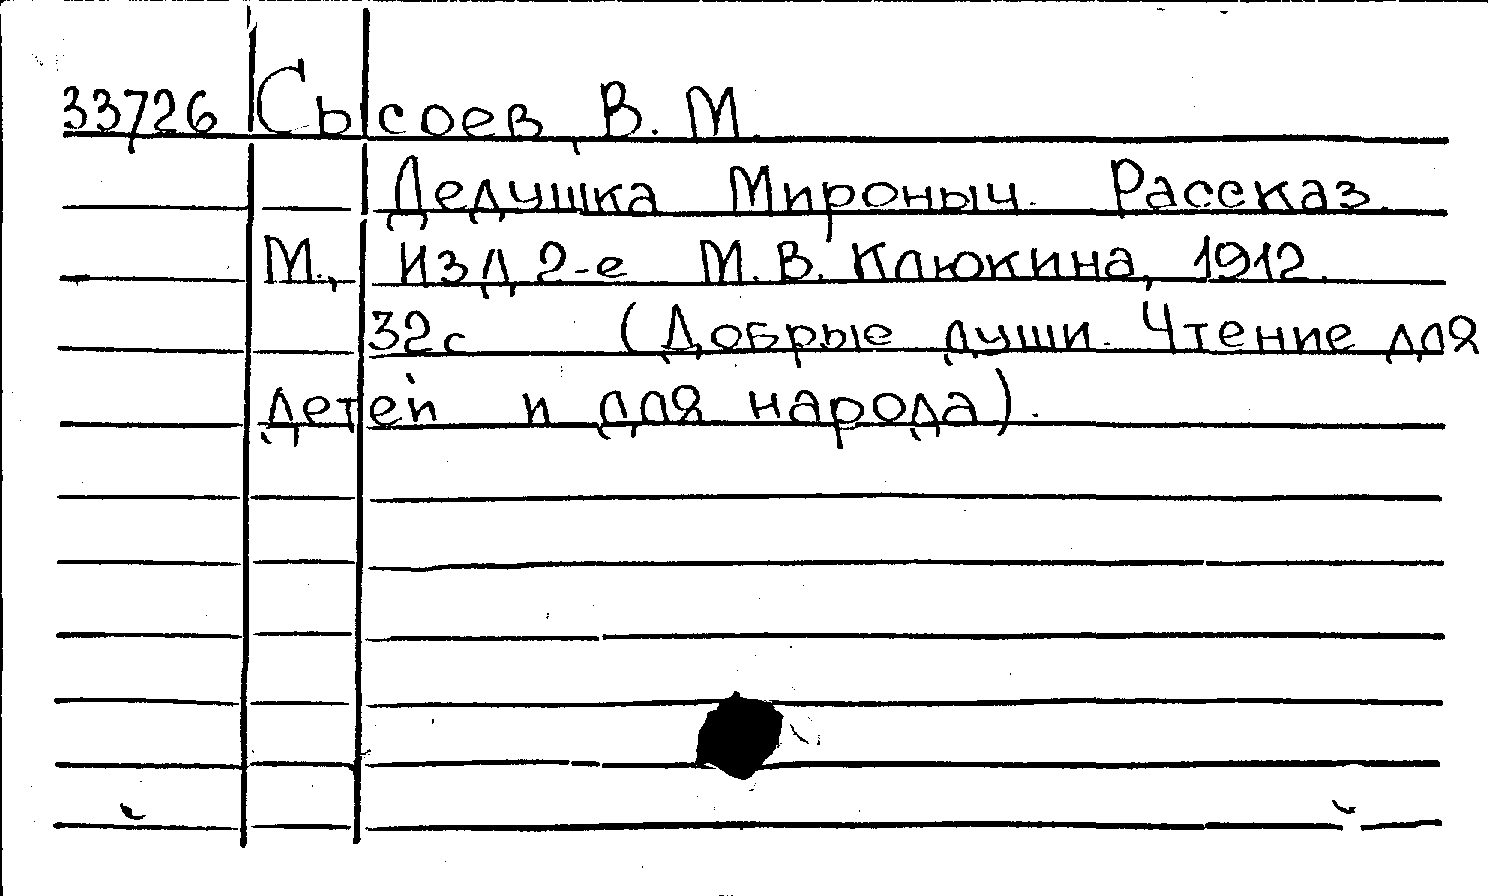 33726 Сысоев, В. М.
Дедушка Мироныч. Рассказ.
М., изд 2-е М. В. Клюкина, 1912.
32с (Добрые души. Чтение для
детей и для народа).